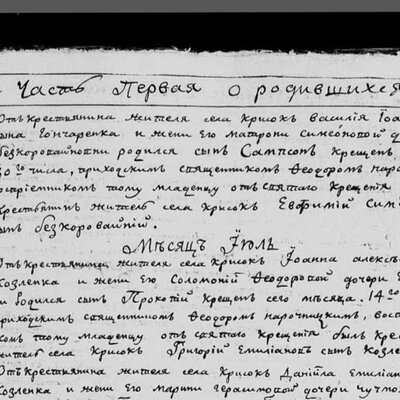 Часть Первая о родившихся
Отъ крестьянина жителя села крисокъ василія Іоа
сына Гончаренка и жени Его матрони симеоновой д
безкоровайновни родился сынъ Сампсонъ Крещенъ
30го числа, приходскимъ священникомъ Ѳеодоромъ наро
воспріемникомъ тому младенцу отъ святаго крещенія
крестьянинъ житель села крисокъ Евфимій Сим
сынъ безкоровайній.
Мѣсяцъ Іюль
Отъ крестьянина жителя села крисокъ Іоанна алекс
козленка и жени Его Соломоніи Ѳеодоровой дочери
родился сынъ Прокопій Крещенъ сего мѣсяца 14го
приходскимъ священникомъ Ѳеодоромъ нарочницкимъ, восп
комъ тому младенцу отъ святаго крещенія былъ крес
житель села крисокъ Григорій Емиліановъ сынъ козлен
Отъ крестьянина жителя села крисокъ Даніила Емиліан
козленка и жени Его марини герасимовой дочери